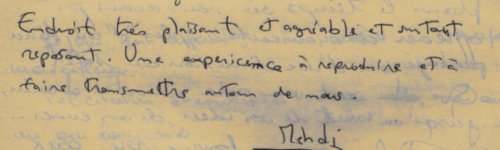 Endroit très plaisant et agréable et surtout
reposant. Une experience à reproduire et à
faire transmettre autour de nous.
Mehdi